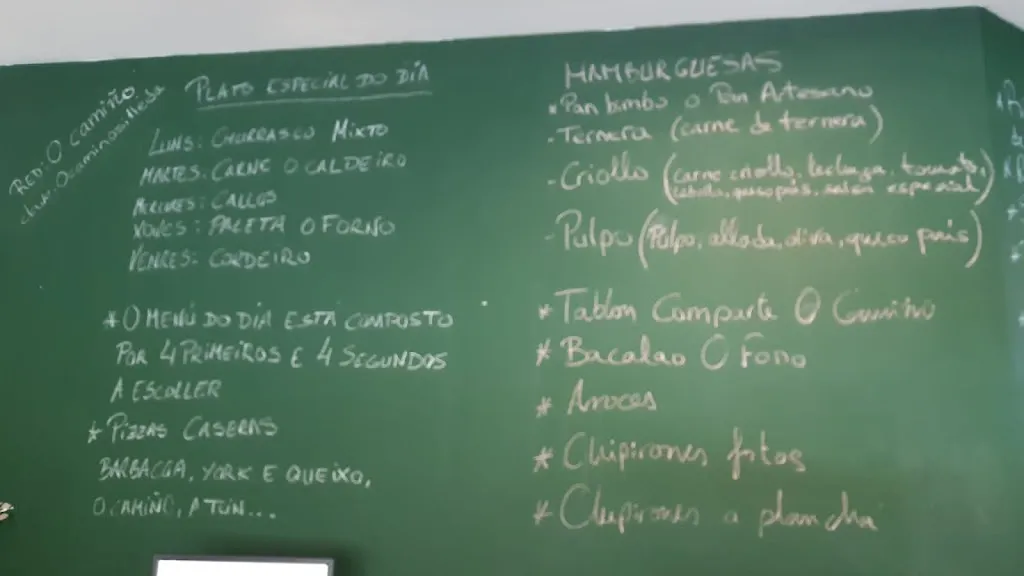 RED: O Camiño
PLATO ESPECIAL DO DÍA
LUNS: CHURRASCO MIXTO
MARTES: CARNE O CALDEIRO
CALLOS
XOVES: PALETA O FORNO
VENRES: CORDEIRO
* O MENÚ DO DÍA ESTA COMPOSTO
POR 4 PRIMEIROS E 4 SEGUNDOS
A ESCOLLER
* PIZZAS CASERAS
BARBACOA, YORK E QUEIXO,
O CAMIÑO, ATUN...
HAMBURGUESAS
* Pan bimbo o Pan Artesano
- Ternera (carne de ternera)
- Criollo (carne criollo, lechuga, tomate,
cebolla, queso país, salsa especial)
- Pulpo (Pulpo, allada, queso país)
* Tablon Comparte O Camiño
* Bacalao O Forno
* Arroces
* Chipirones fritos
* Chipirones a plancha